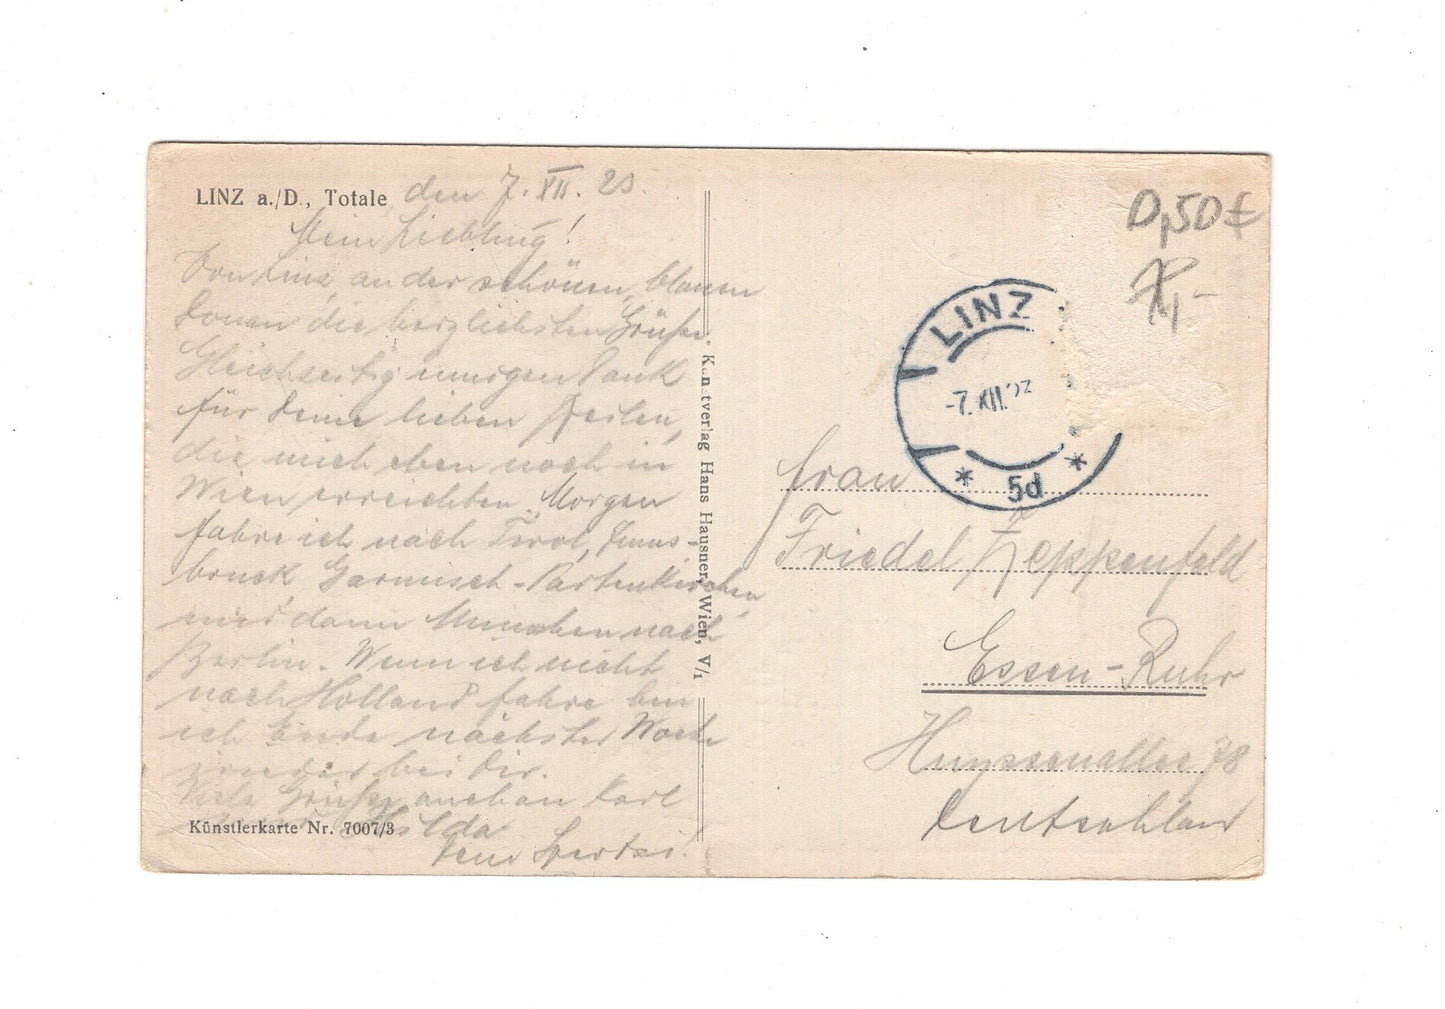 LINZ a./D., Totale den 7. XII. 23.
Mein Liebling!
Von Linz, an der schönen, blauen
Donau die herzlichsten Grüße.
Gleichzeitig innigen Dank
für Deine lieben Zeilen,
die mich eben noch in
Wien erreichten. Morgen
fahre ich nach Tirol, Inns-
bruck, Garmisch-Partenkirchen
und dann München nach
Berlin. Wenn ich nicht
nach Holland fahre bin
ich Ende nächster Woche
wieder bei Dir.
Viele Grüße auch an Karl
Hilda
Dein
Künstlerkarte Nr. 7007/3
Kunstverlag Hans Hausner, Wien, V/1
0,50 €
LINZ
-7.XII.23
* 5d *
Frau
Friedel Zeppenfeld
Essen-Ruhr
Huyssenallee 78
Deutschland